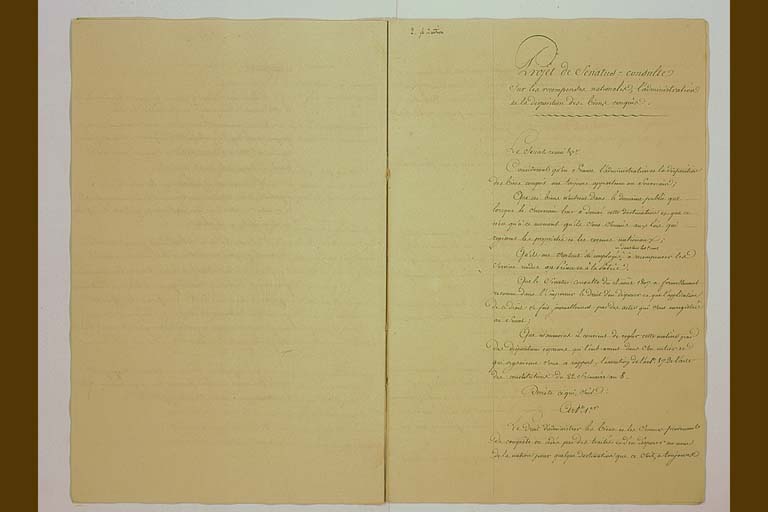 Projet de Senatus-consulte
Sur les recompenses nationales, l'administration
et la disposition des biens conquis.
Le Senat réuni &c
Considerant qu'en France l'administration et la disposition
des biens conquis ont toujours appartenu au Souverain;
Que ces biens n'entrent dans le domaine public que
lorsque le Souverain leur a donné cette destination et que ce
n'est qu'à ce moment qu'ils sont soumis aux lois qui
regissent les propriétés et les revenus nationaux;
Qu'ils ont à recompenser les
Services rendus au Prince et à la patrie;
Que le Senatus consulte du a formellement
reconnu dans l'Empereur le droit d'en disposer et que l'application
de ce droit se fait journellement par des actes qui sont enregistrés
au Senat;
Que néanmoins il convient de regler cette matière par
des dispositions expresses qui l'embrassent dans son entier et
qui organisent sous ce rapport, l'execution de l'art. de l'acte
des constitutions du 22 Frimaire an 8.
Decrète ce qui suit:
Art. 1er
Le Droit d'administrer les biens et les revenus provenant
de conquête ou cédés par des traités et d'en disposer au nom
de la nation pour quelque destination que ce soit, a toujours